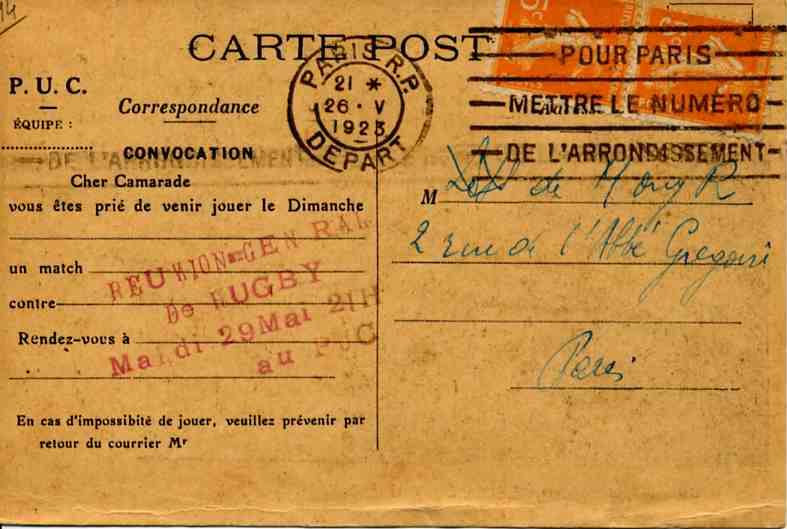 14
CARTE POST
P. U. C.
ÉQUIPE :
Correspondance
CONVOCATION
Cher Camarade
vous êtes prié de venir jouer le Dimanche
un match
contre
Rendez-vous à
En cas d'impossibité de jouer, veuillez prévenir par
retour du courrier Mr
REUNION GEN RAL
De RUGBY
Mardi 29Mai 21H
au PUC
PARIS R.P.
21 *
26 · V
1923
DEPART
POUR PARIS
METTRE LE NUMERO
DE L'ARRONDISSEMENT
DE L'ARRONDISSEMENT
M de
2 rue de l'Abbé Grégoire
Paris